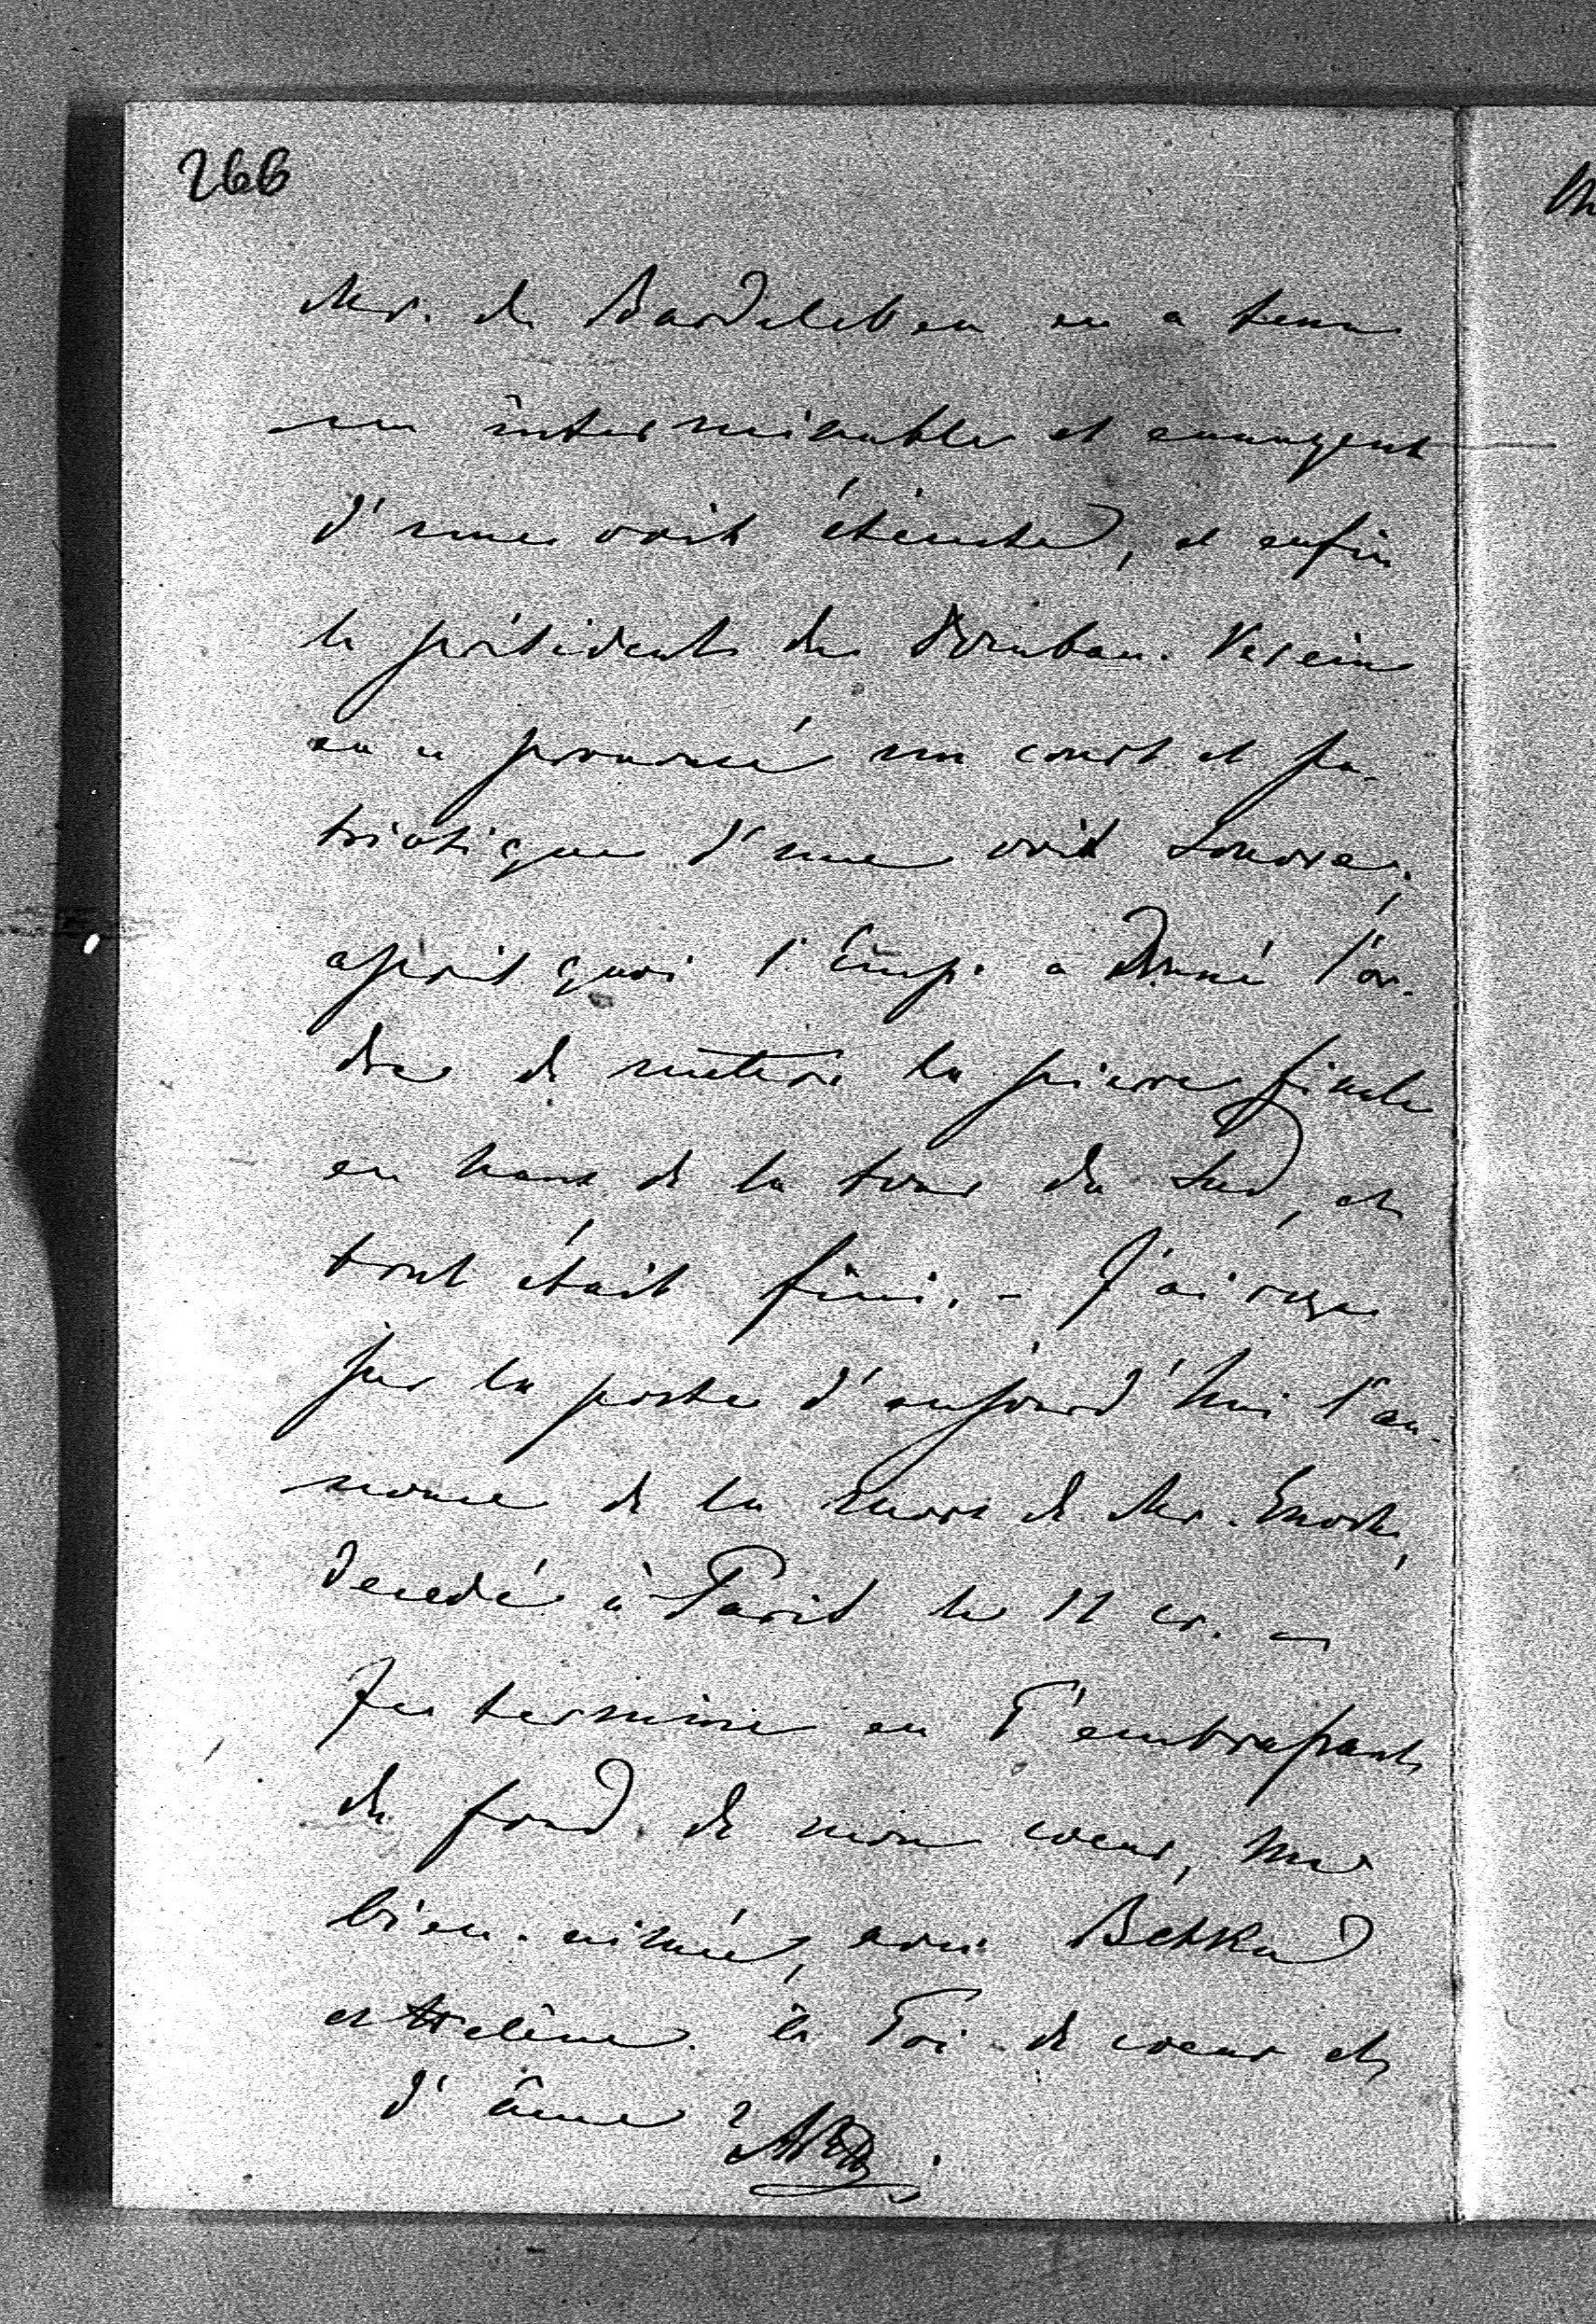 266
Mr. de Bardeleben en a tenu
un interminable et ennuyeux
d'une voix éteinte, et enfin
le président du Dombau-Verein
en a prononcé un court et pa-
triotique d'une voix sonore;
après quoi l'Emp. a donné l'or-
dre de mettre la pierre finale
en haut de la tour du Sud, et
tout était fini. – J'ai reçu
par la poste d'aujourd'hui l'an-
nonce de la mort de Mr. Enoch,
decedé à Paris le 11 cr. –
Je termine en T'embrassant
du fond de mon coeur, ma
bien-aimée, avec Betka
et Helène. à Toi de coeur et
d'âme